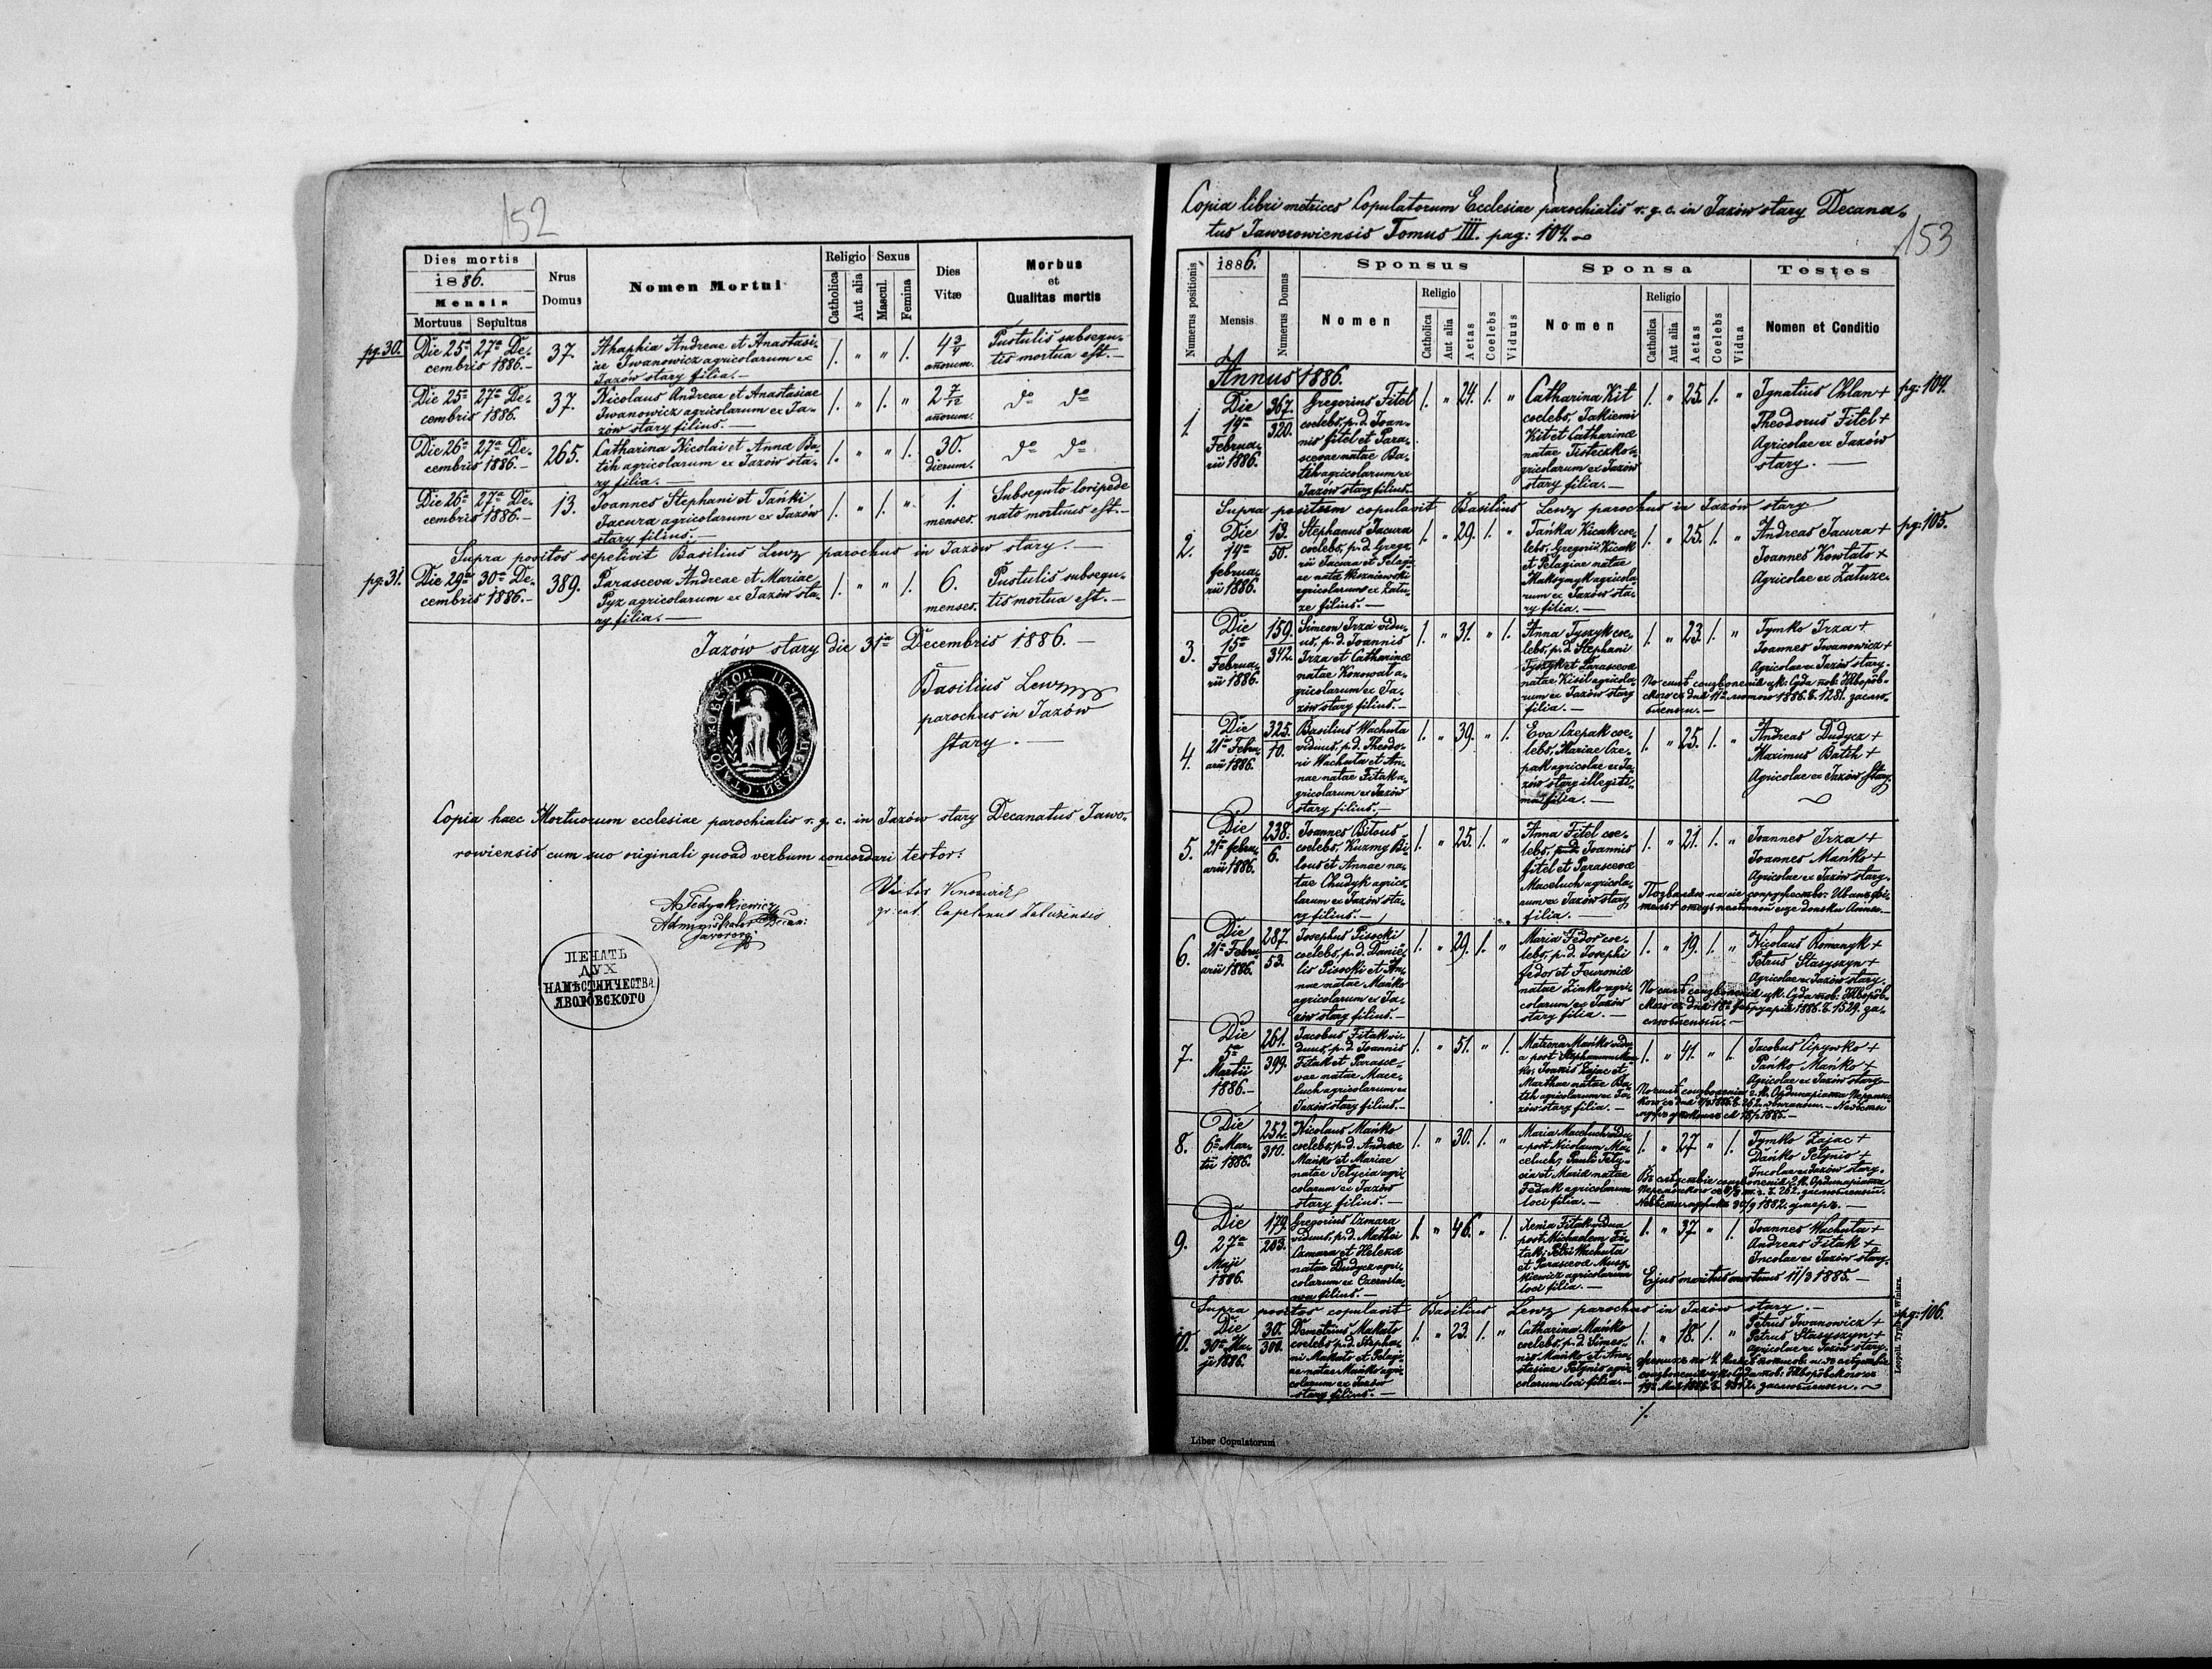 152
Dies mortis
1886.
Mensis
Mortuus Sepultus
Nrus Domus
Nomen Mortui
Religio
Catholica
Aut alia
Sexus
Mascul.
Femina
Dies Vitæ
Morbus
et
Qualitas mortis
pg. 30. Die 25a 27a De- 37. Ahaphia Andreae et Anastasi- 1. " " 1. 4 3/4 Pustulis subsequ-
cembris 1886.- ae Iwanowicz agricolarum ex annorum. tis mortua est.-
Jazów stary filia.-
Die 25a 27a De- 37. Nicolaus Andreae et Anastasiae 1. " 1. " 2 7/12 do do
cembris 1886. Iwanowicz agricolarum ex Ja- annorum.
zów stary filius.-
Die 26a 27a De- 265. Catharina Nicolai et Anna Ba- 1. " " 1. 30. do do
cembris 1886.- tih agricolarum ex Jazów sta- dierum.
ry filia.-
Die 26a 27a De- 13. Joannes Stephani et Tańki 1. " 1. " 1. Subsequto loripede
cembris 1886.- Jacura agricolarum ex Jazów menses. nato mortuus est.-
stary filius.-
Supra positos sepelivit Basilius Lewz parochus in Jazów stary.-
pg: 31. Die 29a 30a De- 389. Parasceva Andreae et Mariae 1. " " 1. 6. Pustulis subsequ-
cembris 1886.- Pyz agricolarum ex Jazów sta- menses. tis mortua est.-
ry filia.-
Jazów stary die 31a Decembris 1886.-
Basilius Lewz
parochus in Jazów
stary.-
Copia haec Mortuorum ecclesiae parochialis r. g. c. in Jazów stary Decanatus Jawo-
rowiensis cum suo originali quoad verbum concordari testor:
A Fedynkiewicz
Administrator
Victor
gr: cat.
ПЕЧАТЬ
ДУХ
НАМѢСТНИЧЕСТВА
ЯВОРОВСКОГО
Copia libri metrices Copulatorum Ecclesiae parochialis r. g. c. in Jazów stary Decana-
tus Jaworowiensis Tomus III. pag: 104.
153
Numerus positionis
1886.
Mensis
Numerus Domus
Sponsus
Nomen
Religio
Catholica
Aut alia
Aetas
Coelebs
Viduus
Sponsa
Nomen
Religio
Catholica
Aut alia
Aetas
Coelebs
Vidua
Testes
Nomen et Conditio
Annus 1886.
1. Die 14a Februarii 1886. 367. 320.
Gregorius Fitel
coelebs, p. d. Joan-
nis Fitel et Para-
scevae natae Ba-
tih agricolarum ex
Jazów stary filius.-
1. " 24. 1. "
Catharina Kit
coelebs, Jakiemi
Kit et Catharina
natae Tisteczko a-
gricolarum ex Jazów
stary filia.-
1. " 25. 1. "
Ignatius Chlan +
Theodorus Fitel +
Agricolae ex Jazów
stary.-
pg: 104.
Supra positum copulavit Basilius Lewz parochus in Jazów stary
2. Die 14a februarii 1886. 13. 50.
Stephanus Jacura
coelebs, p. d. Grego-
rii Jacura et Pelagi-
ae nata Wiszniewski
agricolarum ex Zatu-
ze filius.-
1. " 29. 1. "
Tańka Kicak coe-
lebs, Gregorii Kicak
et Pelagiae natae
Maksymyk agricola-
rum ex Jazów sta-
ry filia.-
1. " 25. 1. "
Andreas Jacura +
Joannes Kowtalo +
Agricolae ex Zatuze.
pg: 105.
3. Die 15a Februarii 1886. 159. 342.
Simeon Irza vidu-
us, p. d. Joannis
Irza et Catharina
natae Konowal a-
gricolarum ex Ja-
zów stary filius.-
1. " 31. " 1.
Anna Tyszyk coe-
lebs, p. d. Stephani
Tyszyk et Parasceva
natae Kisil agricola-
rum ex Jazów stary
filia.-
1. " 23. 1. "
Tymko Irza +
Joannes Iwanowicz +
Agricolae ex Jazów stary.
4. Die 21a Februarii 1886. 325. 70.
Basilius Wachuta
viduus, p. d. Theodo-
ri Wachuta et An-
nae natae Fitak a-
gricolarum ex Jazów
stary filius.-
1. " 39. " 1.
Eva Czepak coe-
lebs, Mariae Cze-
pak agricolae ex Ja-
zów stary illegiti-
ma filia.-
1. " 25. 1. "
Andreas Dudycz +
Maximus Batih +
Agricolae ex Jazów stary
5. Die 21a februarii 1886. 238. 6.
Joannes Bilous
coelebs, Kuzmy Bi-
lous et Annae na-
tae Chudyk agrico-
larum ex Jazów sta-
ry filius.-
1. " 25. 1. "
Anna Fitel coe-
lebs, Joannis
Fitel et Parascevae
Maceluch agricola-
rum ex Jazów stary
filia.-
1. " 21. 1. "
Joannes Irza +
Joannes Mańko +
Agricolae ex Jazów stary.
6. Die 21a Februarii 1886. 287. 53.
Josephus Pisocki
coelebs, p. d. Danie-
lis Pisocki et An-
nae natae Mańko
agricolarum ex Ja-
zów stary filius.-
1. " 29. 1. "
Maria Fedor coe-
lebs, p. d. Josephi
Fedor et Feuronia
natae Zinko agri-
colarum ex Jazów
stary filia.-
1. " 19. 1. "
Nicolaus Romanyk +
Petrus Stasyszyn +
Agricolae ex Jazów stary.
7. Die 5a Martii 1886.- 261. 399.
Jacobus Fitak vi-
duus, p. d. Joannis
Fitak et Parasce-
vae natae Mace-
luch agricolarum ex
Jazów stary filius.-
1. " 51. " 1.
Matrona Mańko vidu-
a post Stephanum Mań-
ko, Joannis Zajac et
Marthae natae Ba-
tih agricolarum ex Ja-
zów stary filia.-
1. " 41. " 1.
Jacobus Cipywko +
Pańko Mańko +
Agricolae ex Jazów stary
8. Die 6a Martii 1886. 252. 310.
Nicolaus Mańko
coelebs, p. d. Andreae
Mańko et Mariae
natae Tetycia agri-
colarum ex Jazów
stary filius.-
1. " 30. 1. "
Maria Maceluch vidu-
a post Nicolaum Ma-
celuch, Pauli Tety-
cia et Maria natae
Fedak agricolarum
loci filia.-
1. " 27 " 1.
Tymko Zajac +
Dańko Petynio +
Incolae ex Jazów stary.
9. Die 27a Maji 1886. 179. 203.
Gregorius Czmara
viduus, p. d. Mathei
Czmara et Helena
natae Dudycz agri-
colarum ex Czernila-
wa filius.-
1. " 46. " 1.
Xenia Fitak vidua
post Michaelem Fi-
tak, Petri Wachuta
et Parascevae Musz-
kiewicz agricolarum
loci filia.-
1. " 37 " 1.
Joannes Wachuta +
Andreas Fitak +
Incolae ex Jazów stary.
Ejus maritus mortuus 11/3 1885.-
Supra positos copulavit Basilius Lewz parochus in Jazów stary.-
10. Die 30a Maji 1886. 30. 300.
Demetrius Makato
coelebs, p. d. Stepha-
ni Makato et Pelagi-
ae natae Mańko agri-
colarum ex Jazów
stary filius.-
1. " 23. 1. "
Catharina Mańko
coelebs, p. d. Simeo-
nis Mańko et Ana-
stasiae Petynio agri-
colarum loci filia.-
1. " 18. 1. "
Petrus Iwanowicz +
Petrus Stasyszyn +
Agricolae ex Jazów stary.
pg: 106.
Liber Copulatorum